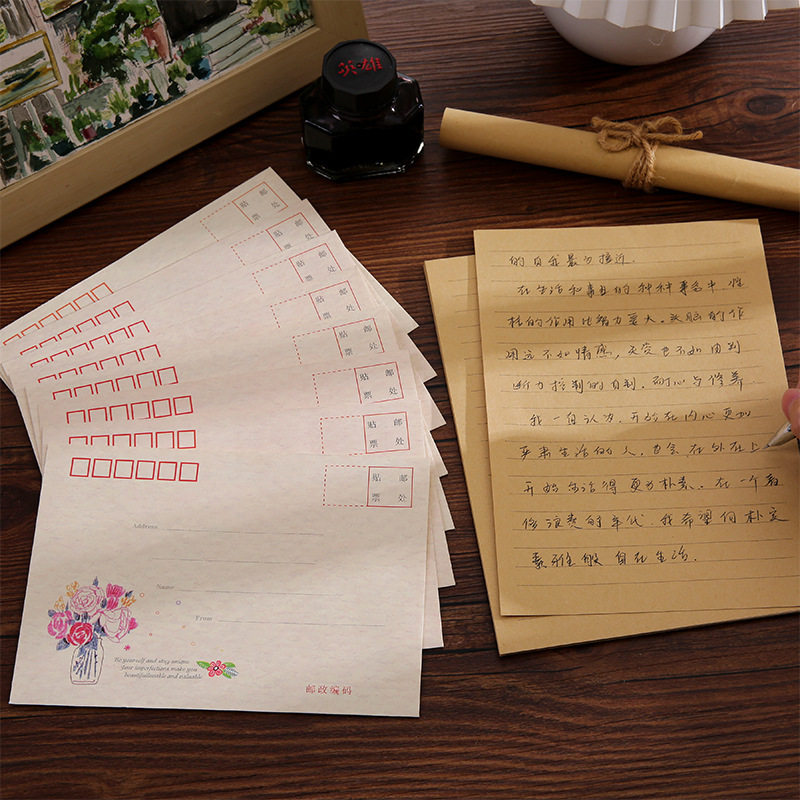 英雄
贴 邮
票 处
贴 邮
票 处
贴 邮
票 处
贴 邮
票 处
贴 邮
票 处
贴 邮
票 处
贴 邮
票 处
贴 邮
票 处
Address
Name
From
Be yourself and stay unique
Your imperfections make you
beautifullovable and valuable
邮政编码
的自我最为接近.
在生活和事业的种种事务中 性
格的作用比智力要大。头脑的作
用远不如情感，天资也不如由判
断力控制的自制、耐心与修养
我一直认为,开始在内心更加
严肃生活的人,也会在外在上
开始生活得更为朴素。在一个奢
侈浪费的年代,我希望 朴实
素雅般 自在生活.